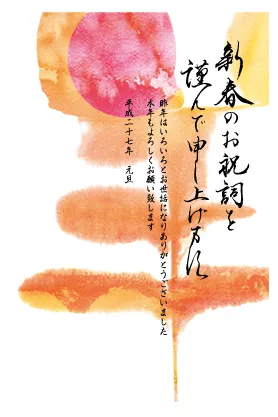 新春のお祝詞を
謹んで申し上げます
昨年はいろいろとお世話になりありがとうございました
本年もよろしくお願い致します
平成二十七年 元旦